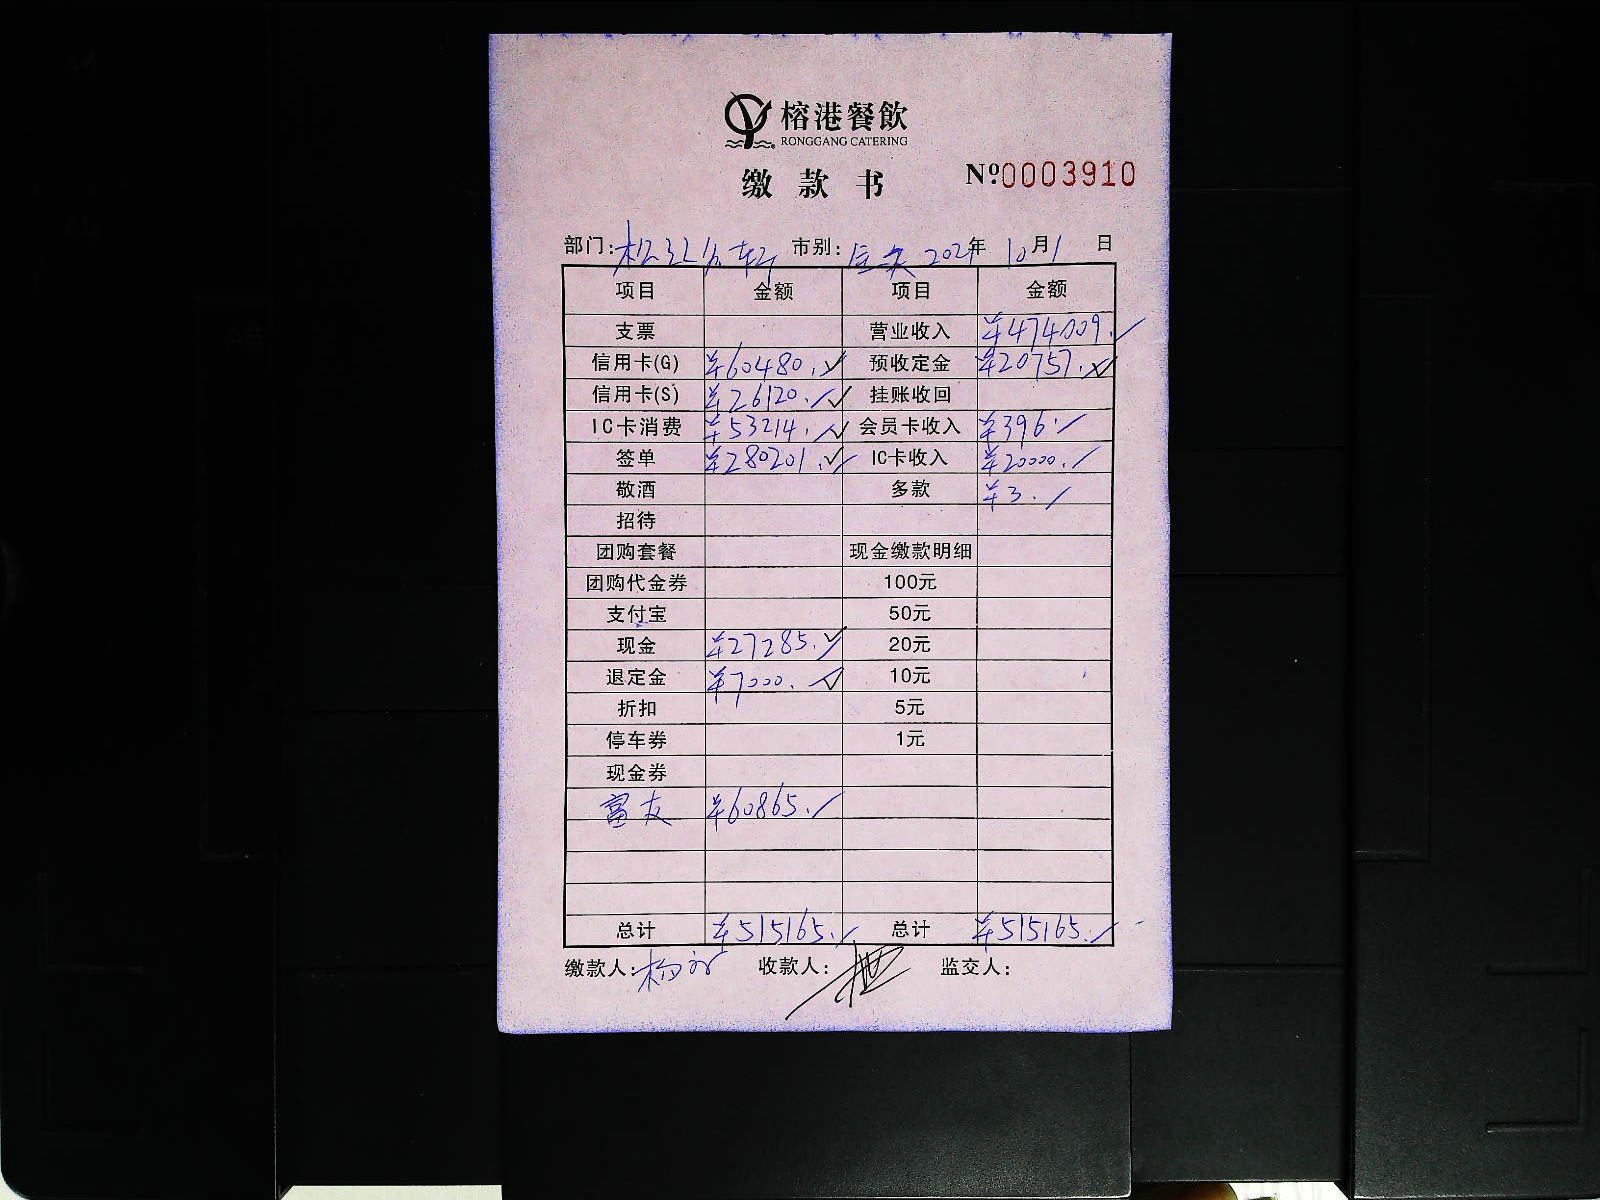 榕港餐飲
RONGGANG CATERING
缴款书
Nº:0003910
部门:松江公轩 市别:全天 2021年10月1日
项目 金额 项目 金额
支票 营业收入 ¥474009.
信用卡(G) ¥60480. 预收定金 ¥20757.
信用卡(S) ¥26120. 挂账收回
IC卡消费 ¥53214. 会员卡收入 ¥396.
签单 ¥280201. IC卡收入 ¥20000.
敬酒 多款 ¥3.
招待
团购套餐 现金缴款明细
团购代金券 100元
支付宝 50元
现金 ¥27285. 20元
退定金 ¥7000. 10元
折扣 5元
停车券 1元
现金券
富友 ¥60865.
总计 ¥515165. 总计 ¥515165.
缴款人: 收款人: 监交人: